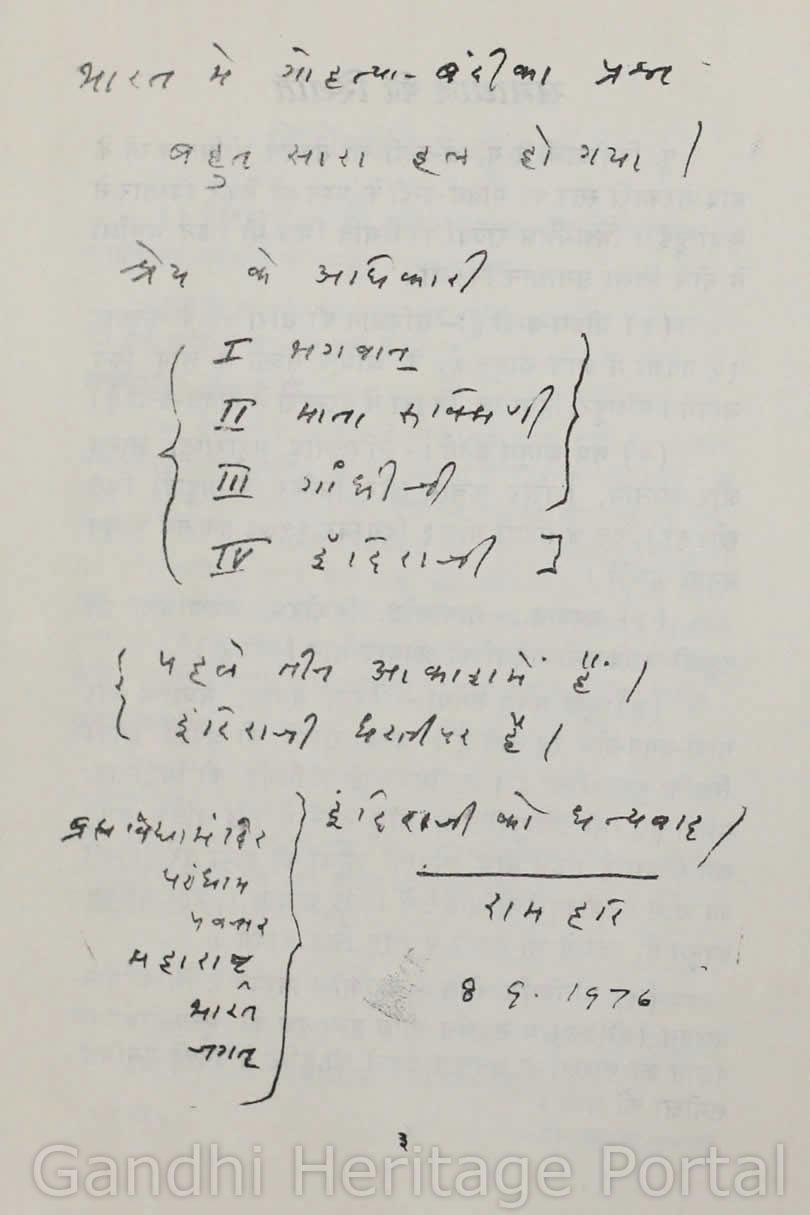 भारत में गोहत्या-बंदी का प्रश्न
बहुत सारा हल हो गया।
श्रेय के अधिकारी
I भगवान
II माता रुक्मिणी
III गाँधीजी
IV इंदिराजी
पहले तीन आकाश में हैं।
इंदिराजी धरती पर हैं।
इंदिराजी को धन्यवाद।
राम हरि
8 9. 1976
ब्रह्मविद्यामंदिर
परंधाम
पवनार
महाराष्ट्र
भारत
जगत्
३
Gandhi Heritage Portal